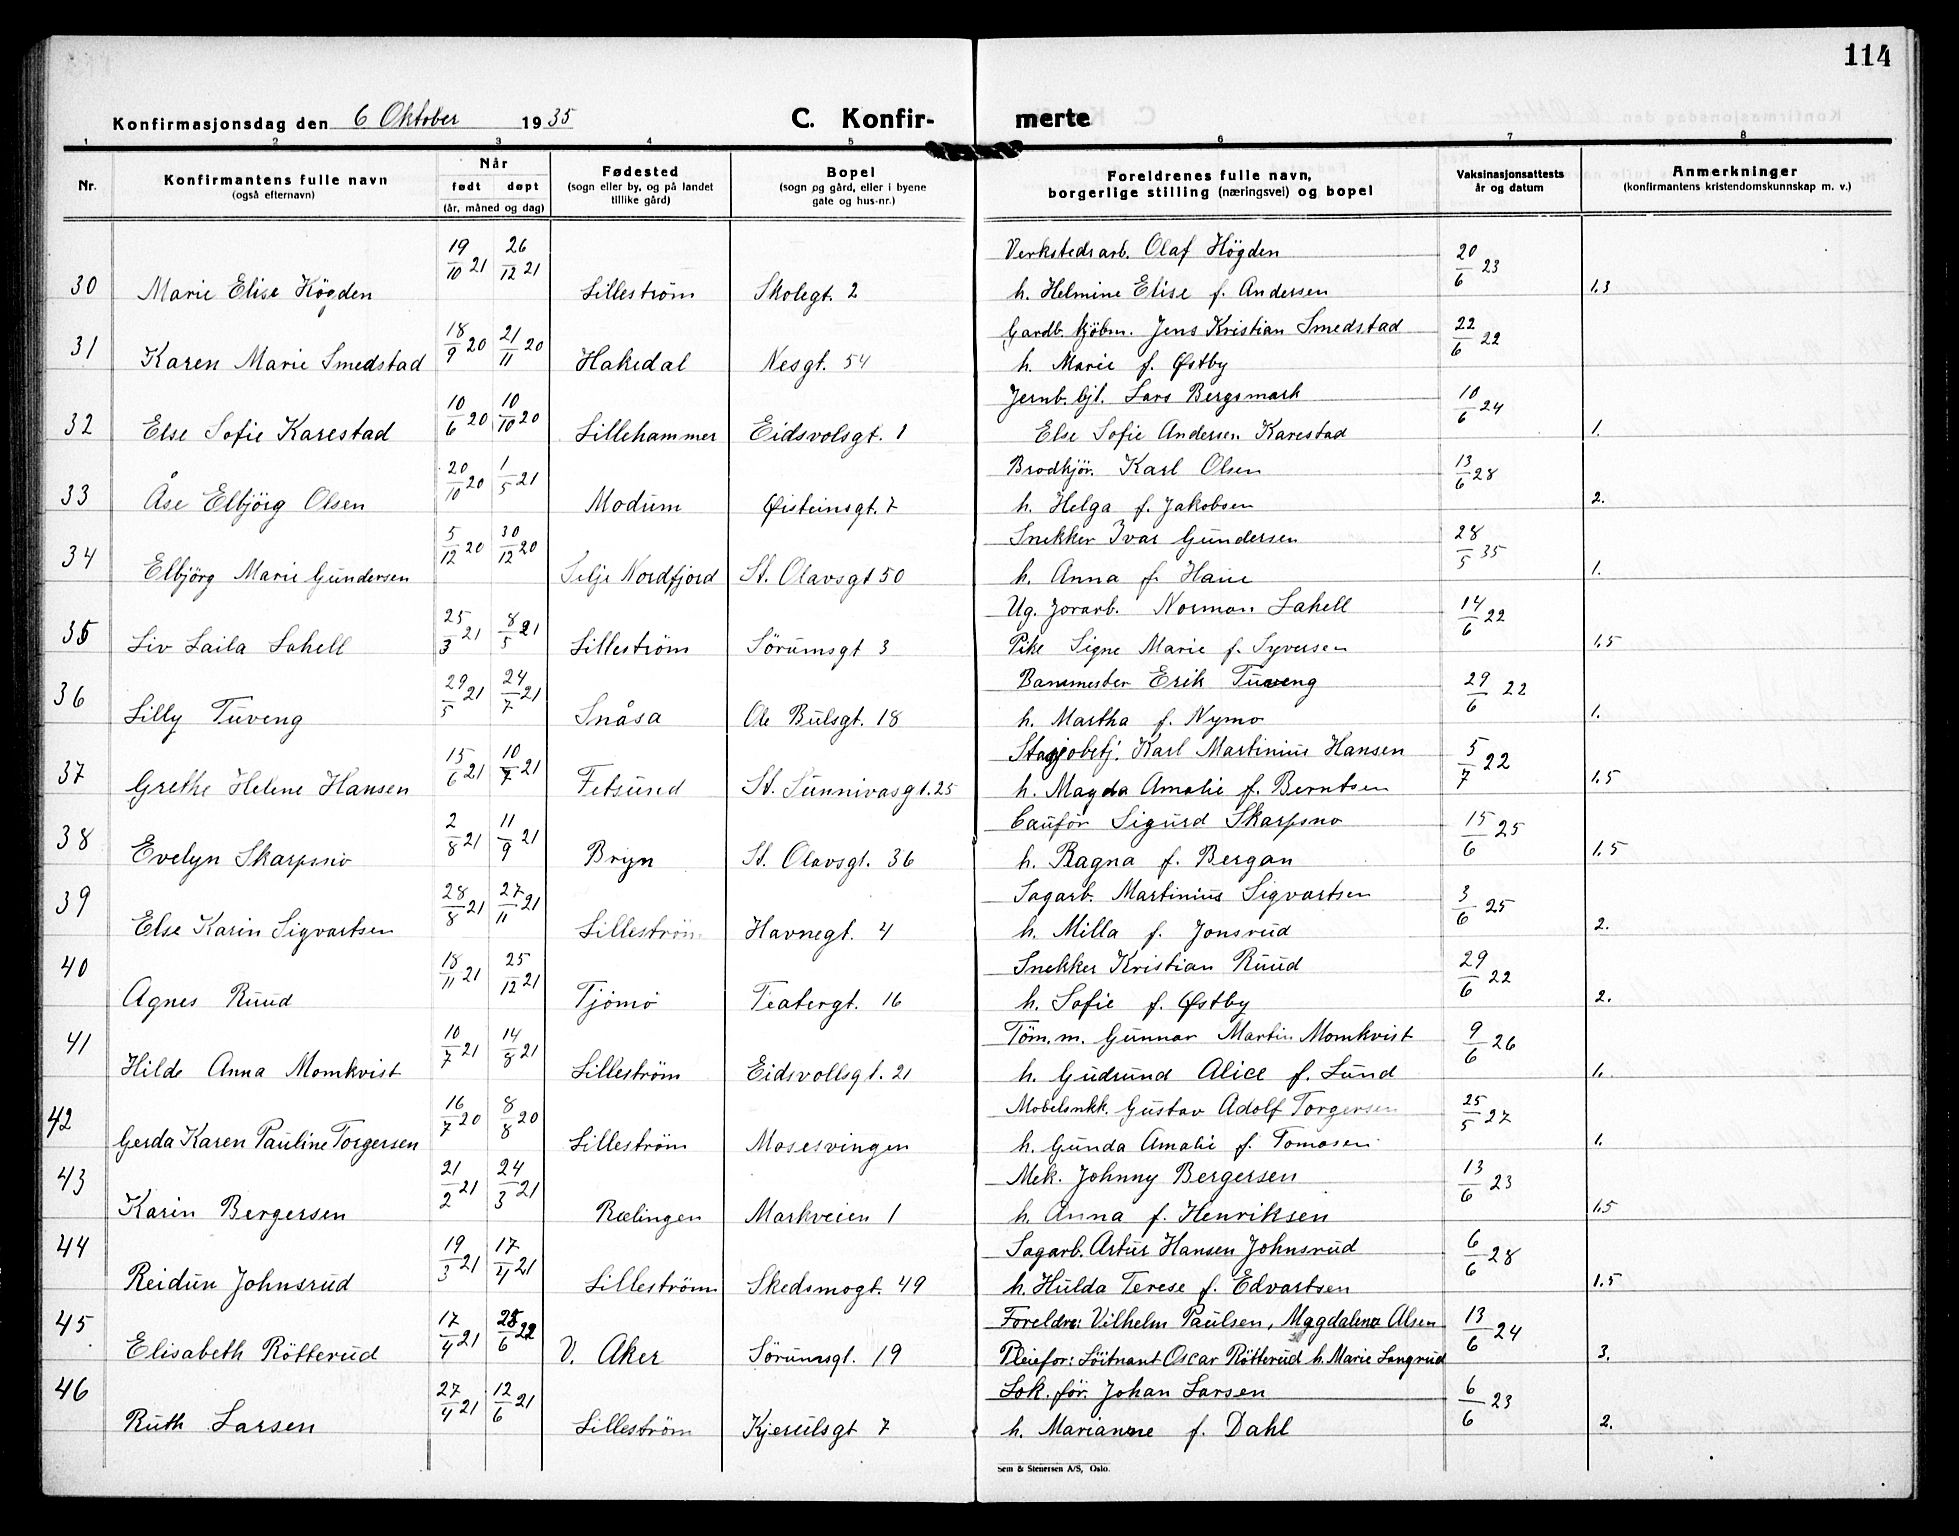 114
Konfirmasjonsdag den 6 Oktober 1935 C. Konfir- merte
1 2 3 4 5 6 7 8
Nr. Konfirmantens fulle navn (også efternavn) Når født døpt (år, måned og dag) Fødested (sogn eller by, og på landet tillike gård) Bopel (sogn og gård, eller i byene gate og hus-nr.) Foreldrenes fulle navn, borgerlige stilling (næringsvei) og bopel Vaksinasjonsattests år og datum Anmerkninger (konfirmantens kristendomskunnskap m. v.)
30 Marie Elise Högden 19/10 21 26/12 21 Lilleström Skolegt. 2 Verkstedsarb. Olaf Högden 20/6 23
h. Helmine Elise f. Andersen 1.3
31 Karen Marie Smedstad 18/9 20 21/11 20 Hakedal Nesgt. 54 Gardb. kjöbm. Jens Kristian Smedstad 22/6 22
h. Marie f. Østby
32 Else Sofie Karestad 10/6 20 10/10 20 Lillehammer Eidsvolsgt. 1 Jernb. bjt. Lars Bergsmark 10/6 24
Else Sofie Andersen Karestad 1.
33 Åse Elbjörg Olsen 20/10 20 1/5 21 Modum Øisteinsgt. 7 Brodkjör. Karl Olsen 13/6 28
h. Helga f. Jakobsen 2.
34 Elbjörg Marie Gundersen 5/12 20 30/12 20 Selje Nordfjord St. Olavsgt 50 Snekker Ivar Gundersen 28/5 35
h. Anna f. 1.
35 Liv Laila Lahell 25/3 21 8/5 21 Lilleström Sörumsgt 3 Ug. Jorarb. Norman Lahell 14/6 22
Pike Signe Marie f. Syversen 1.5
36 Lilly Tuveng 29/5 21 24/7 21 Snåsa Ole Bulsgt. 18 Banemester Erik Tuveng 29/6 22
h. Martha f. Nymo 1.
37 Grethe Helene Hansen 15/6 21 10/7 21 Fetsund St. Sunnivasgt. 25 Karl Martinius Hansen 5/7 22
h. Magda Amalie f. Berntsen 1.5
38 Evelyn Skarpsno 2/8 21 11/9 21 Bryn St. Olavsgt. 36 Cauför Sigurd Skarpsno 15/6 25
h. Ragna f. Bergan 1.5
39 Else Karin Sigvartsen 28/8 21 27/11 21 Lilleström Havnegt. 4 Sagarb. Martinius Sigvartsen 3/6 25
h. Milla f. Jonsrud 2.
40 Agnes Ruud 18/11 21 25/12 21 Tjömö Teatergt. 16 Snekker Kristian Ruud 29/6 22
h. Sofie f. Østby 2.
41 Hilde Anna Momkvist 10/7 21 14/8 21 Lilleström Eidsvollsgt. 21 Töm. m. Gunnar Martin Momkvist 9/6 26
h. Gudrund Alice f. Lund 1.
42 Gerda Karen Pauline Torgersen 16/7 20 8/8 20 Lilleström Mosesvingen Mobelsnkk. Gustav Adolf Torgersen 25/5 27
h. Gunda Amalie f. Tomasen 1.
43 Karin Bergersen 21/2 21 24/3 21 Rælingen Markveien 1 Mek. Johnny Bergersen 13/6 23
h. Anna f. Henriksen 1.5
44 Reidun Johnsrud 19/3 21 17/4 21 Lilleström Skedsmogt. 49 Sagarb. Artur Hansen Johnsrud 6/6 28
h. Hulda Terese f. Edvartsen 1.5
45 Elisabeth Rötterud 17/4 21 25/6 22 V. Aker Sörumsgt. 19 Foreldre: Vilhelm Paulsen, Magdalene Alsen 13/6 24
Pleiefor: Löitnant Oscar Rötterud h. Marie Langrud 3.
46 Ruth Larsen 27/4 21 12/6 21 Lilleström Kjerulsgt 7 Lok. för. Johan Larsen 6/6 23
h. Marianne f. Dahl 2.
Sem & Stenersen A/S, Oslo.